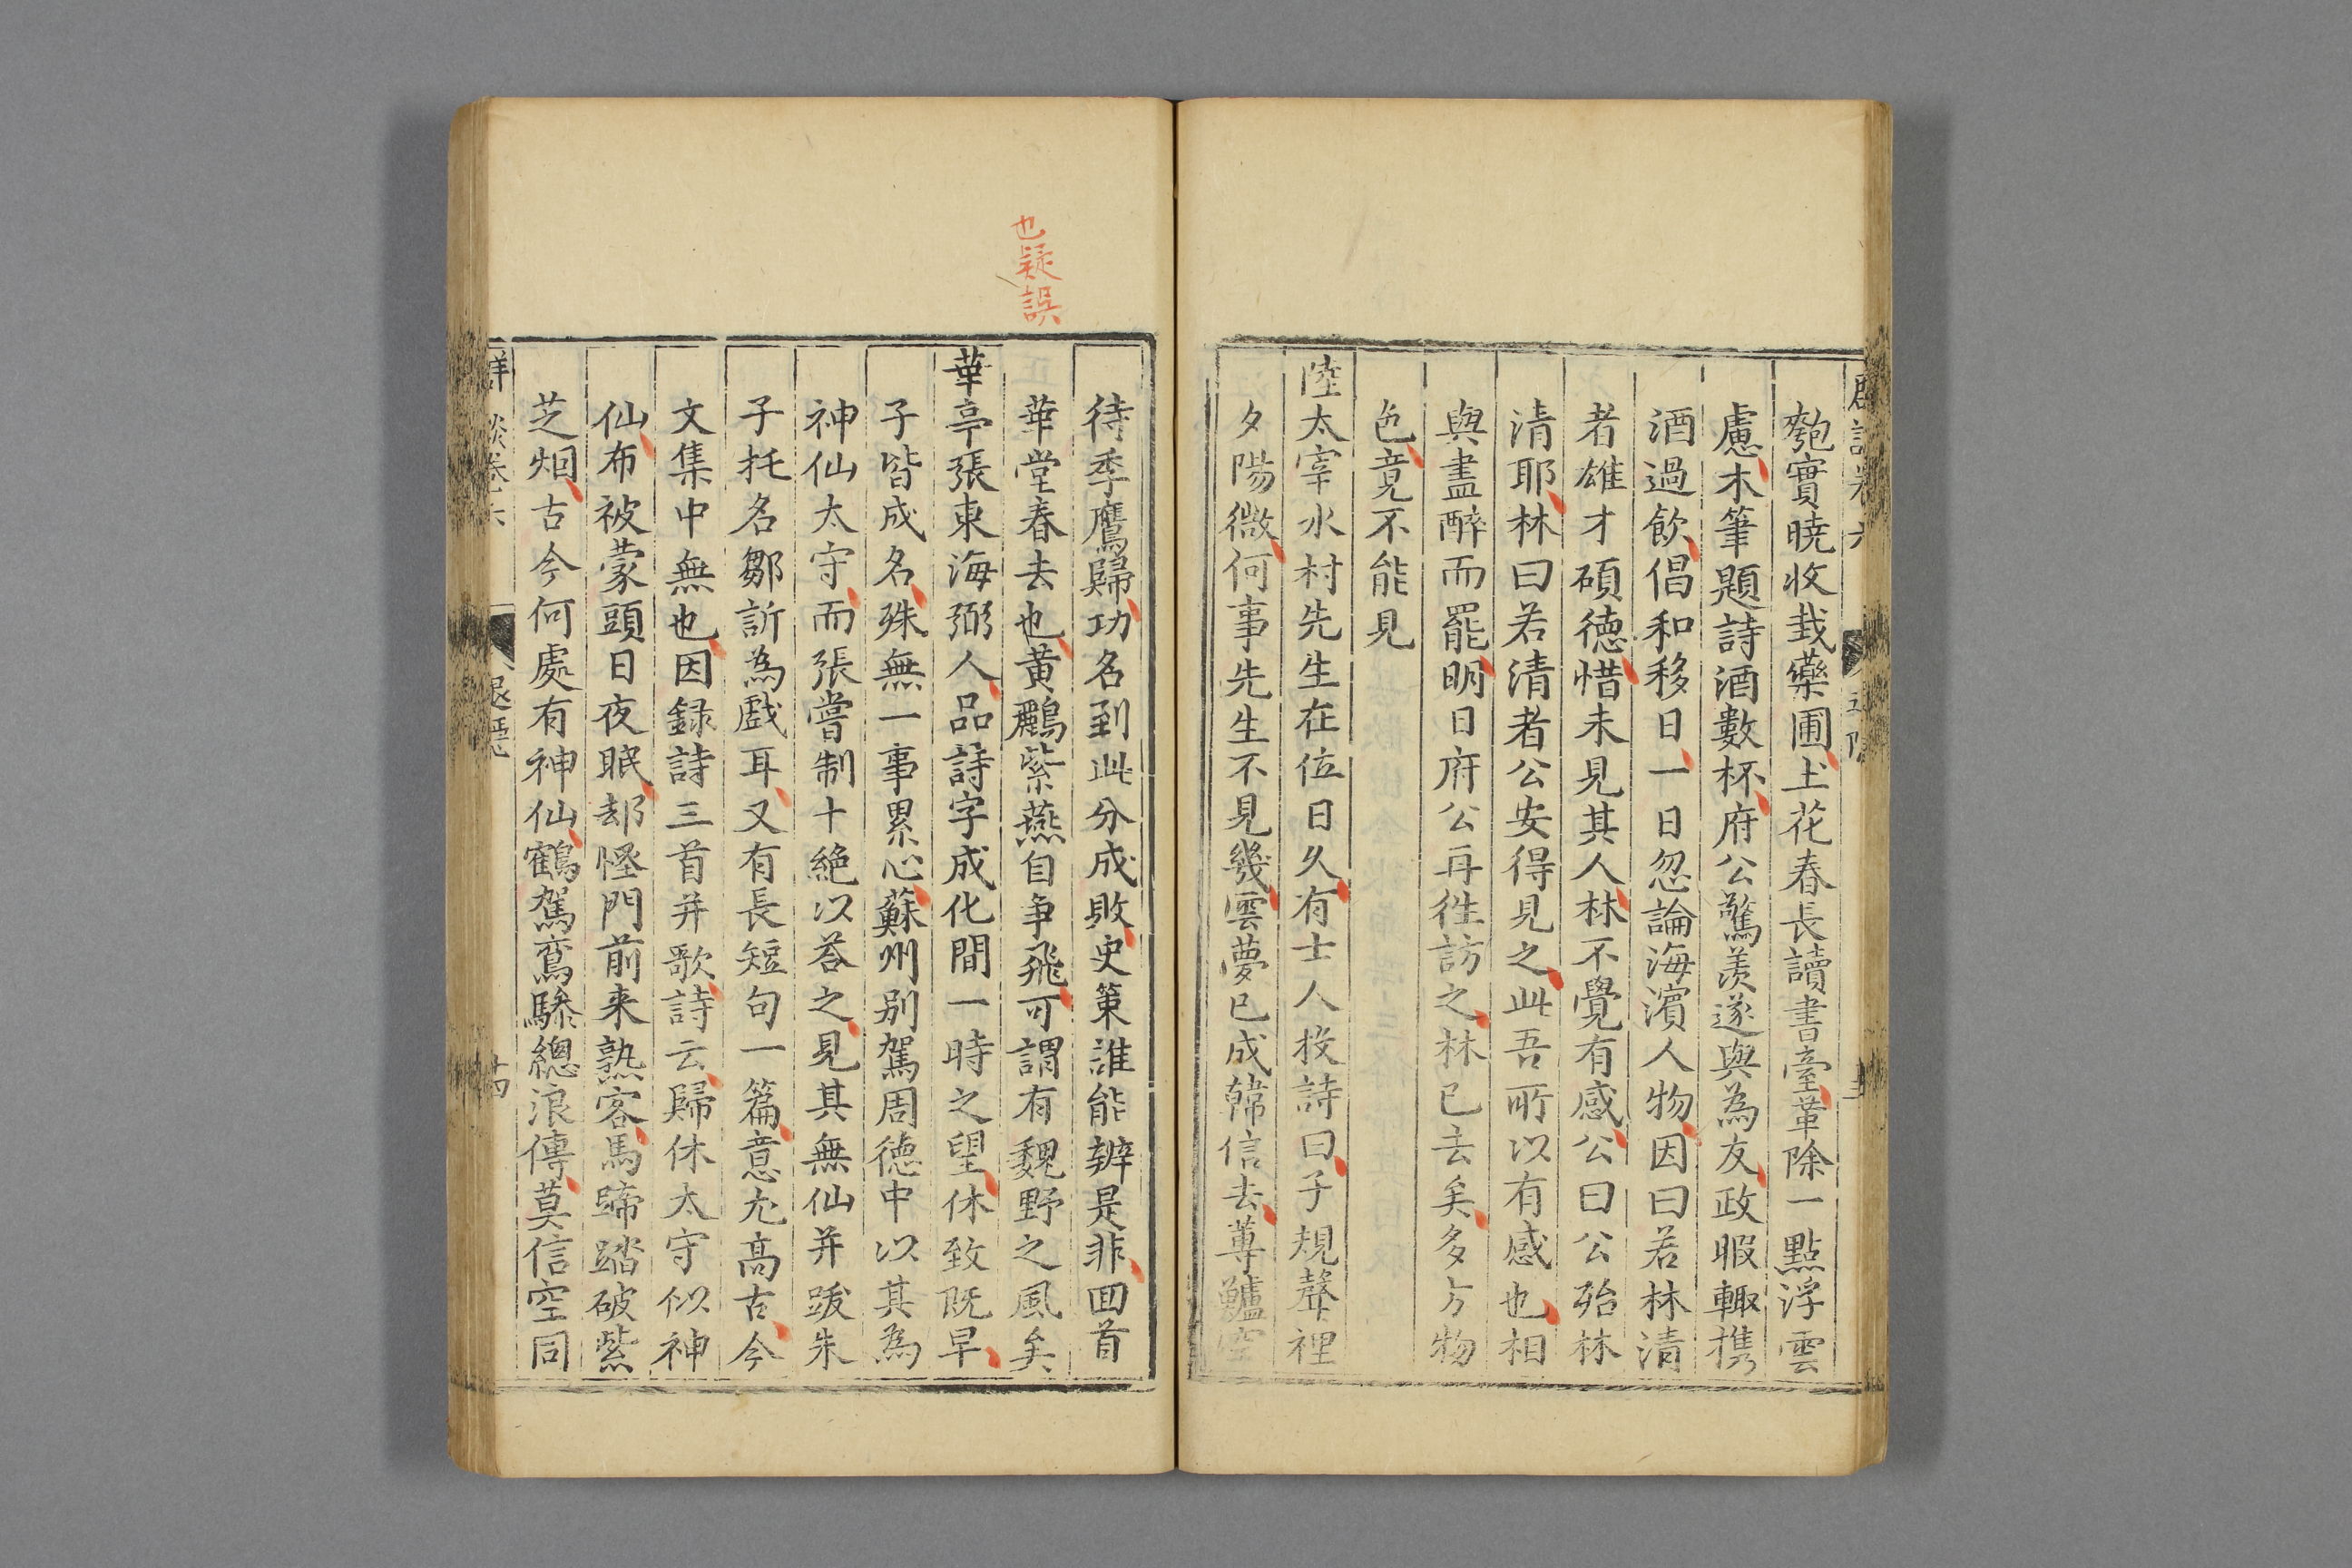 匏實曉收栽藥圃土花春長讀書臺葷除一點浮雲
慮木筆題詩酒數杯府公驚羨遂與為友政暇輙携
酒過飲倡和移日一日忽論海濵人物因曰若林清
者雄才碩德惜未見其人林不覺有感公曰公殆林
清耶林曰若清者公安得見之此吾所以有感也相
與盡醉而罷明日府公再徃訪之林已去矣多方物
色竟不能見
陸太宰水村先生在位日久有士人投詩曰子規聲裡
夕陽微何事先生不見幾雲夢已成韓信去蓴鱸空
也疑誤
待季鷹歸功名到此分成敗史筞誰能辨是非回首
華堂春去也黄鸝紫燕自争飛可謂有魏野之風矣
華亭張東海弼人品詩字成化間一時之望休致既早
子皆成名殊無一事累心蘇州别駕周德中以其為
神仙太守而張嘗制十絶以荅之見其無仙并跋朱
子托名鄒訢為戲耳又有長短句一篇意尤高古今
文集中無也因録詩三首并歌詩云歸休太守似神
仙布被蒙頭日夜眠却怪門前来熟客馬蹄踏破紫
芝烟古今何處有神仙鶴駕鸞驂總浪傳莫信空同
卷六
十四